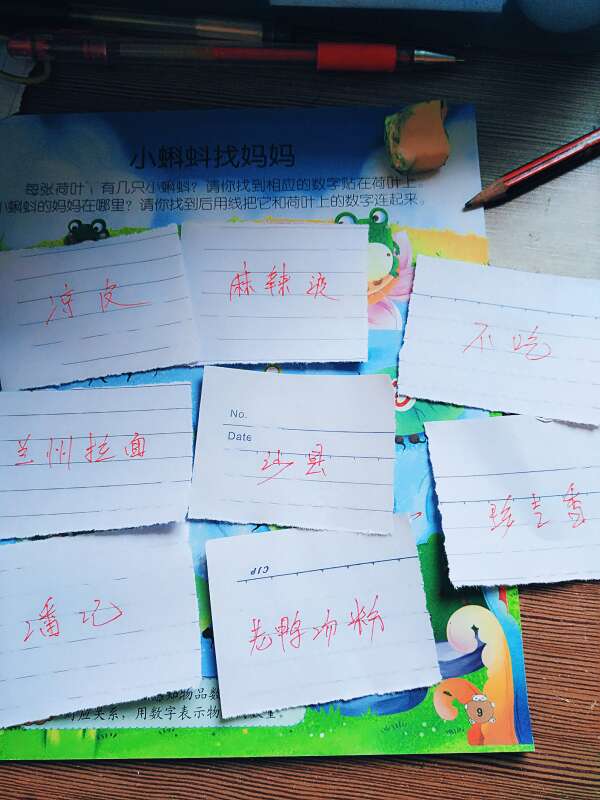 小蝌蚪找妈妈
每张荷叶上有几只小蝌蚪？请你找到相应的数字贴在荷叶上。
小蝌蚪的妈妈在哪里？请你找到后用线把它和荷叶上的数字连起来。
凉皮
麻辣烫
不吃
兰州拉面
No.
Date
沙县
潘记
CIP
老鸭汤粉
物品数
应关系，用数字表示物
9